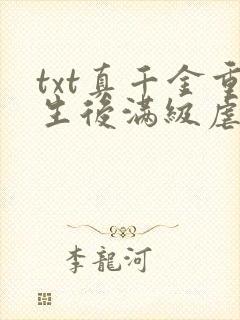 txt真千金重
生後滿級虐
李龍河